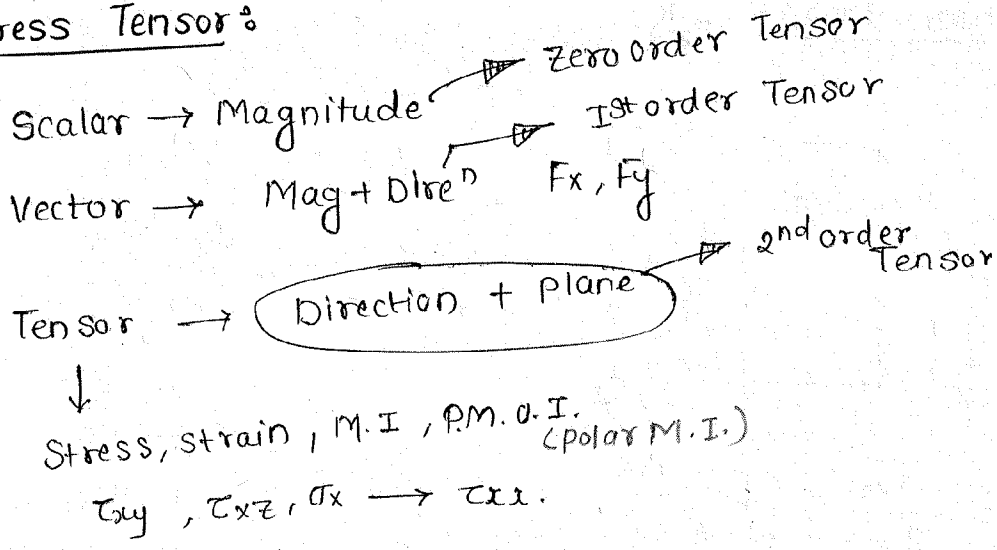 ress Tensor :
Scalar → Magnitude → Zero order Tensor
Vector → Mag + Direⁿ → Ist order Tensor
Fx, Fy
Tensor → Direction + plane → 2nd order Tensor
↓
Stress, strain, M.I, P.M.O.I.
(polar M.I.)
τxy, τxz, σx → τxx.